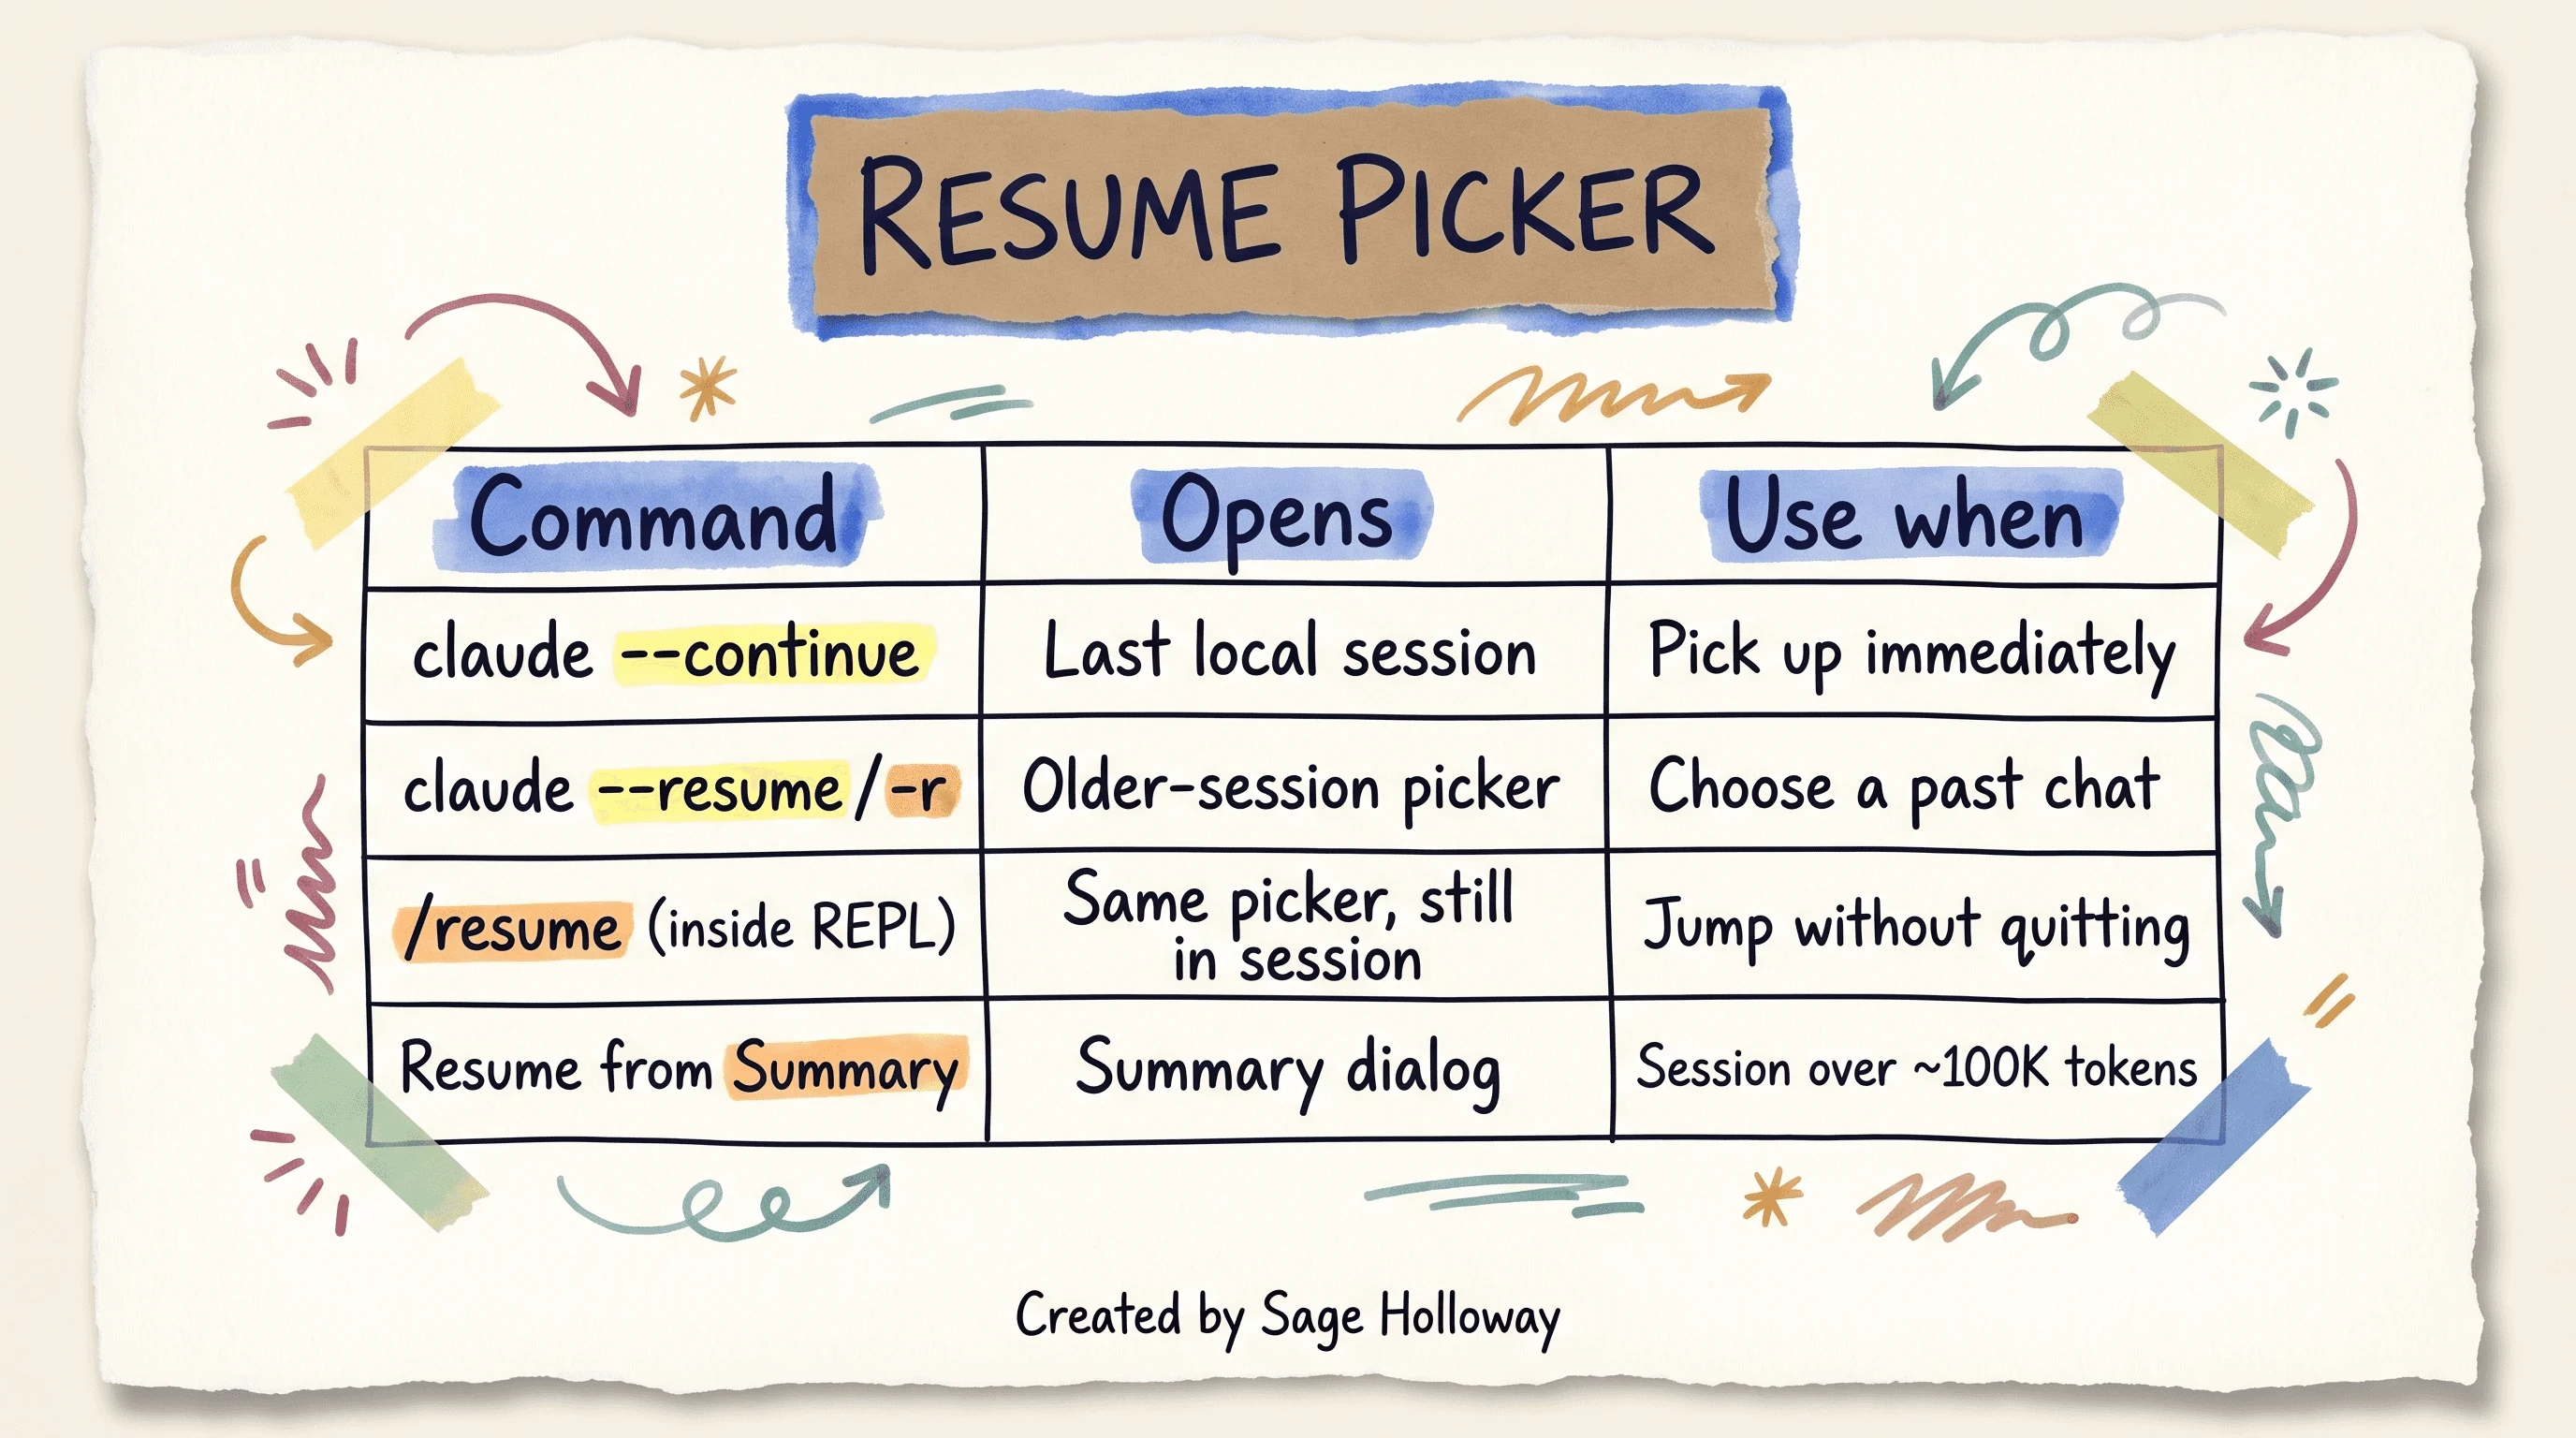 RESUME PICKER
Command
Opens
Use when
claude --continue
Last local session
Pick up immediately
claude --resume/-r
Older-session picker
Choose a past chat
/resume (inside REPL)
Same picker, still
in session
Jump without quitting
Resume from Summary
Summary dialog
Session over ~100K tokens
Created by Sage Holloway